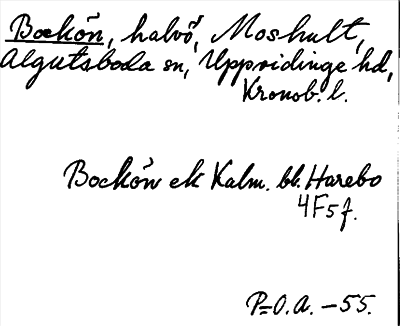 Bockön, halvö, Moshult,
Algutsboda sn, Uppvidinge hd,
Kronob. l.
Bockön ek Kalm. bl. Harebo
4F5f.
P=O.A. -55.